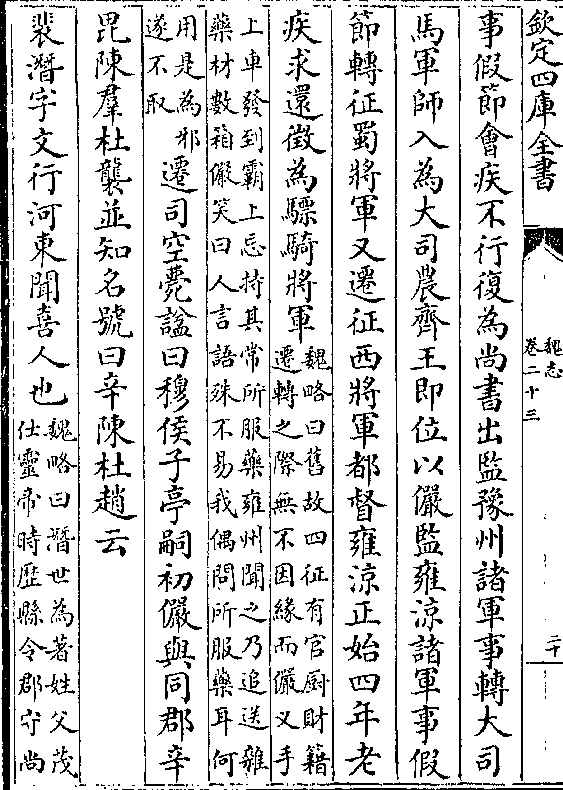 欽定四庫全書
魏志
卷二十三
二十
事假節會疾不行復為尚書出監豫州諸軍事轉大司
馬軍師入為大司農齊王即位以儼監雍涼諸軍事假
節轉征蜀將軍又遷征西將軍都督雍涼正始四年老
疾求還徵為驃騎將軍
魏略曰舊故四征有官厨財籍
遷轉之際無不因緣而儼义手
上車發到霸上忘持其常所服藥雍州聞之乃追送雜
藥材數箱儼笑曰人言語殊不易我偶問所服藥耳何
用是為邪
遂不取
遷司空薨諡曰穆侯子亭嗣初儼與同郡辛
毘陳羣杜襲並知名號曰辛陳杜趙云
裴潛字文行河東聞喜人也
魏略曰潛世為著姓父茂
仕靈帝時歴縣令郡守尚